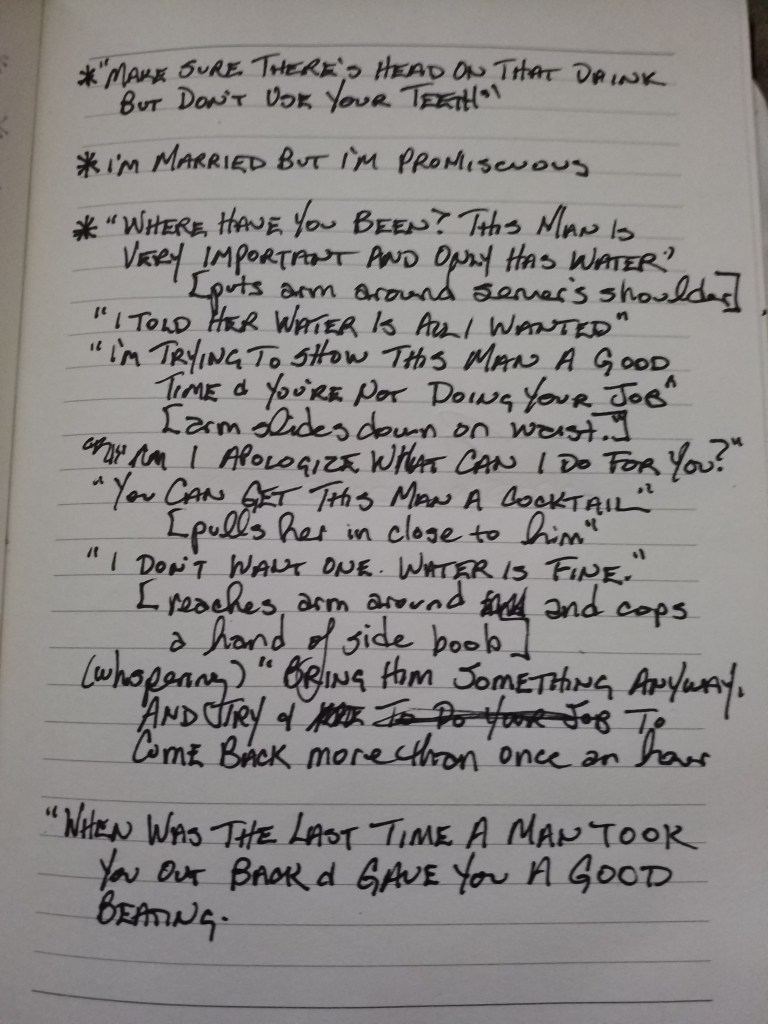 *"MAKE SURE THERE'S HEAD ON THAT DRINK
BUT DON'T USE YOUR TEETH!"
*I'M MARRIED BUT I'M PROMISCUOUS
*"WHERE HAVE YOU BEEN? THIS MAN IS
VERY IMPORTANT AND ONLY HAS WATER"
[puts arm around server's shoulder]
"I TOLD HER WATER IS ALL I WANTED"
"I'M TRYING TO SHOW THIS MAN A GOOD
TIME & YOU'RE NOT DOING YOUR JOB"
[arm slides down on waist.]
I APOLOGIZE WHAT CAN I DO FOR YOU?"
"YOU CAN GET THIS MAN A COCKTAIL"
[pulls her in close to him"
"I DON'T WANT ONE. WATER IS FINE."
[reaches arm around and cops
a hand of side boob]
(whispering) "BRING HIM SOMETHING ANYWAY.
AND TRY & TO DO YOUR JOB TO
COME BACK more than once an hour
"WHEN WAS THE LAST TIME A MAN TOOK
YOU OUT BACK & GAVE YOU A GOOD
BEATING.